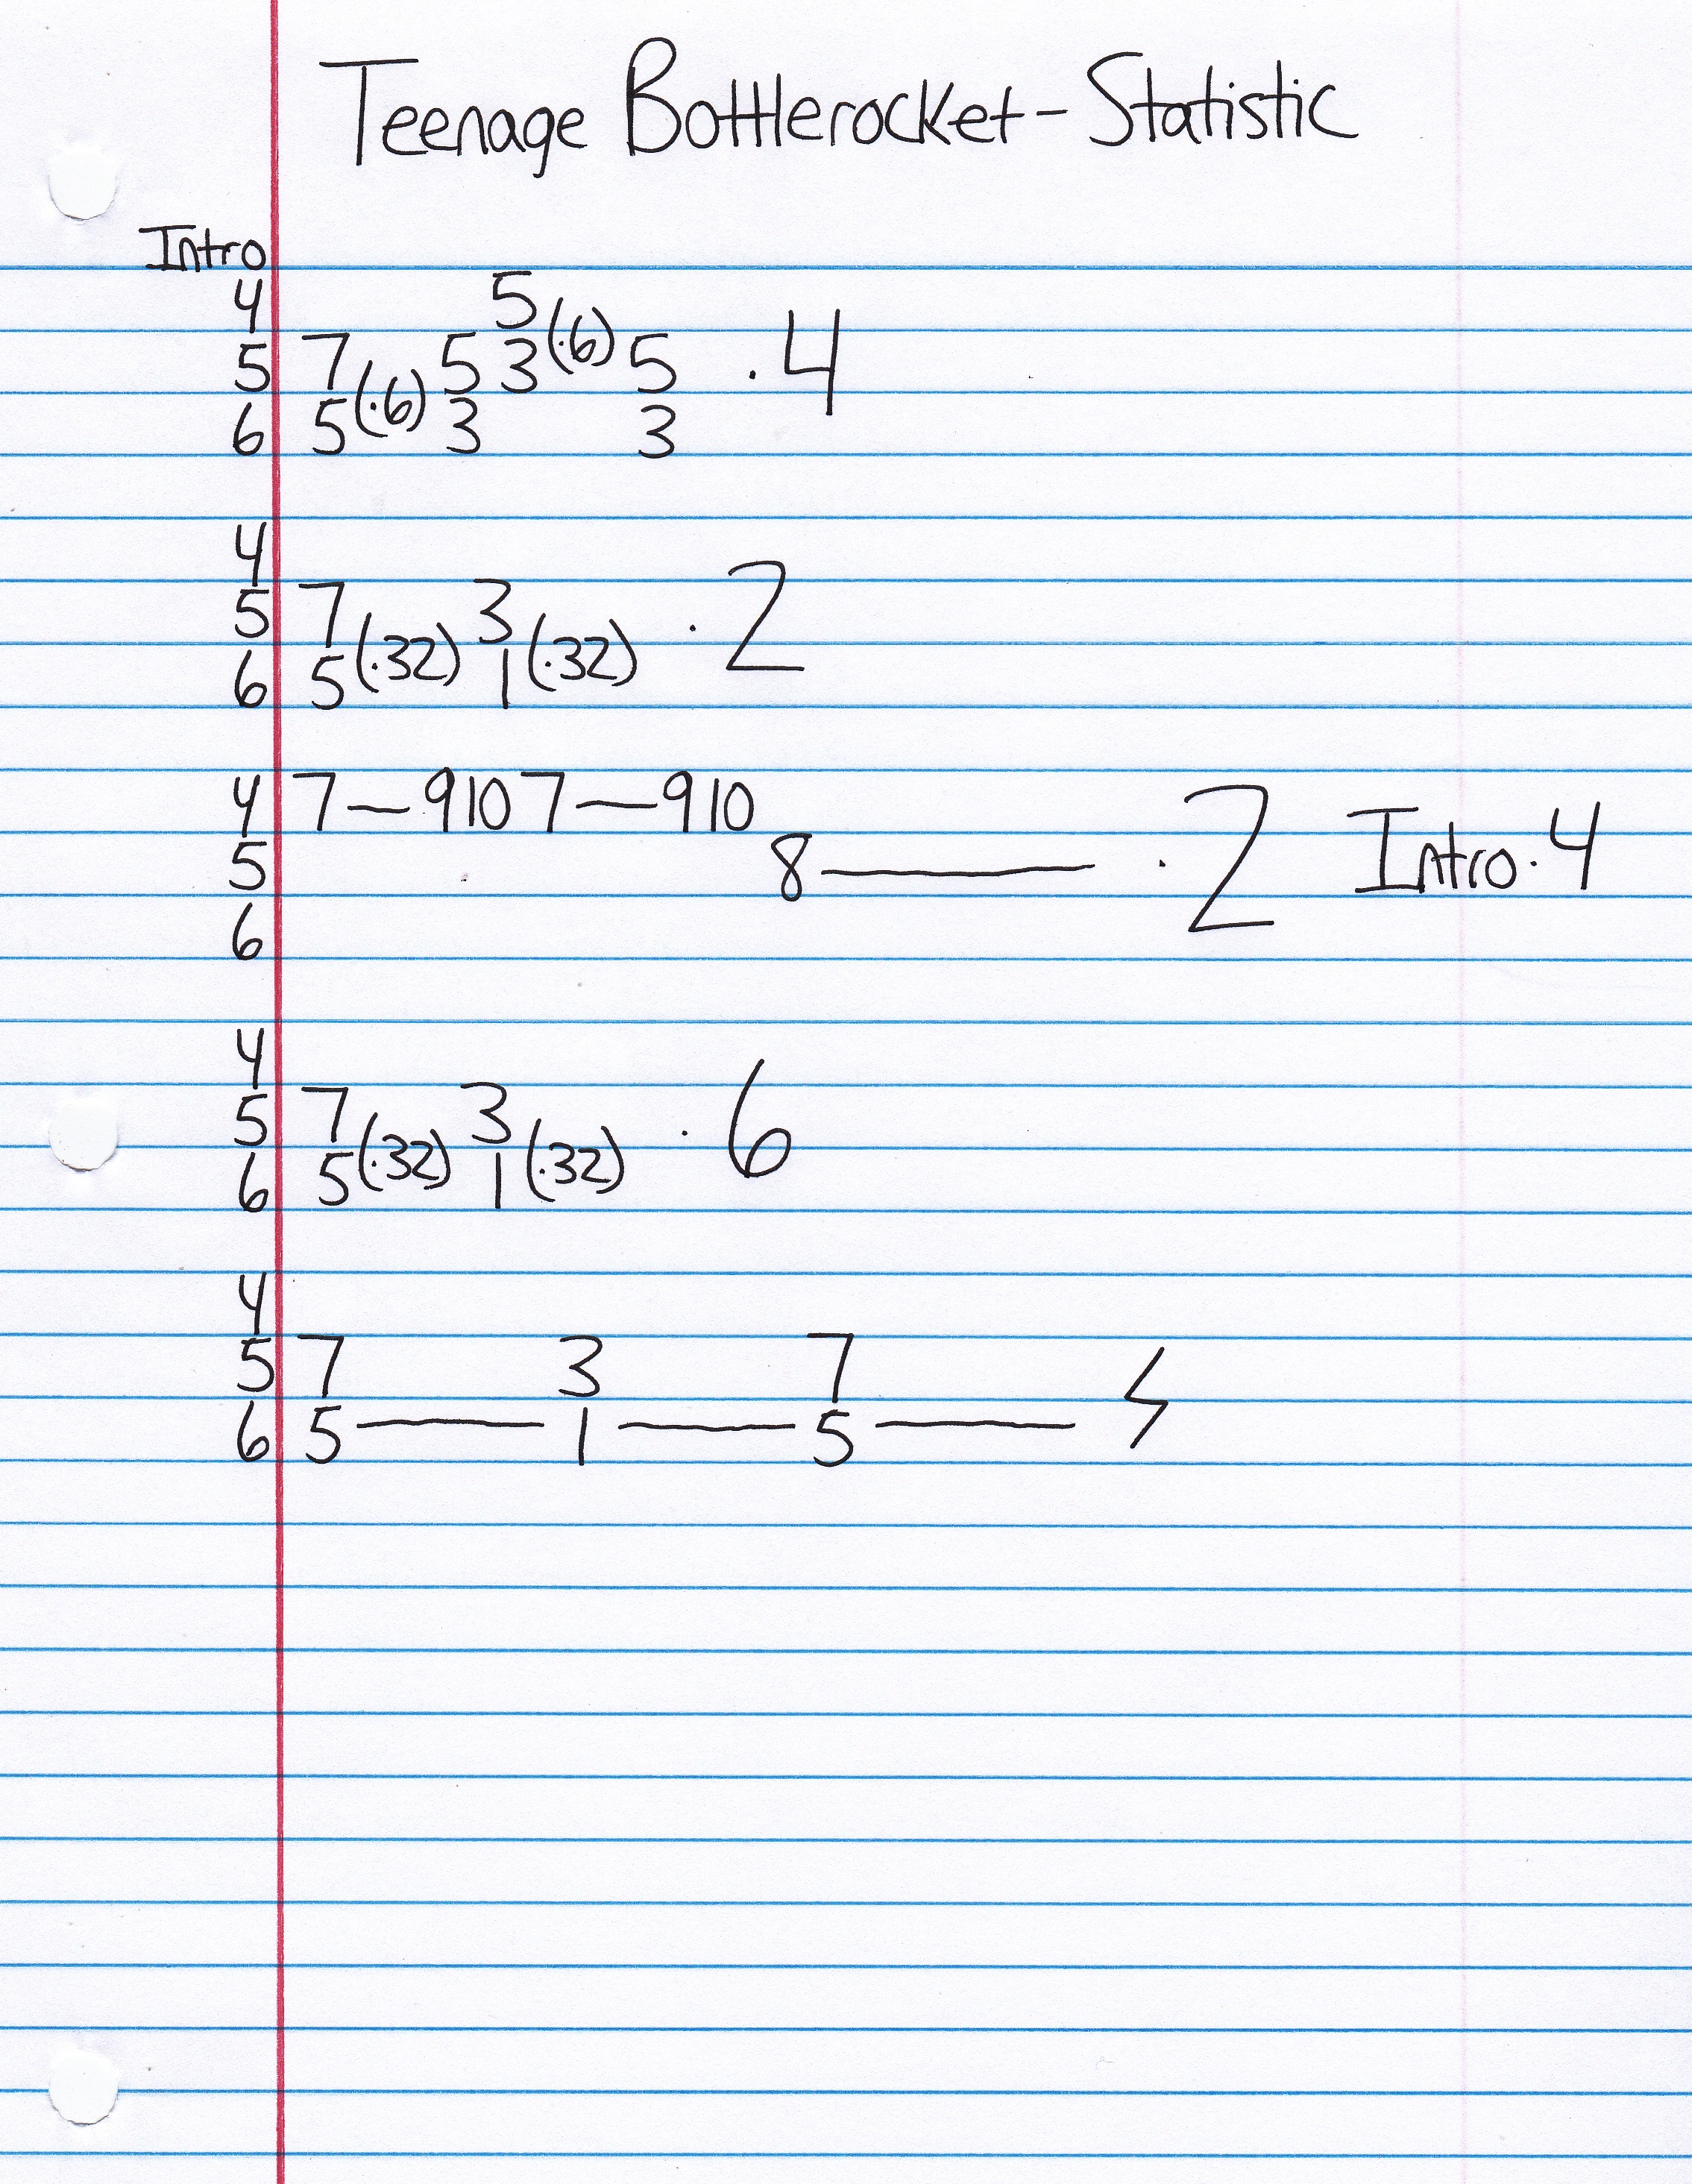 Teenage Bottlerocket - Statistic
Intro
4 5
5 7 5 3 (·6) 5 ·4
6 5 (·6) 3 3
4
5 7 3 ·2
6 5 (·32) 1 (·32)
4 7—9 10 7—9 10
5 8— ·2 Intro·4
6
4
5 7 3 ·6
6 5 (·32) 1 (·32)
4
5 7 3 7
6 5—1—5—